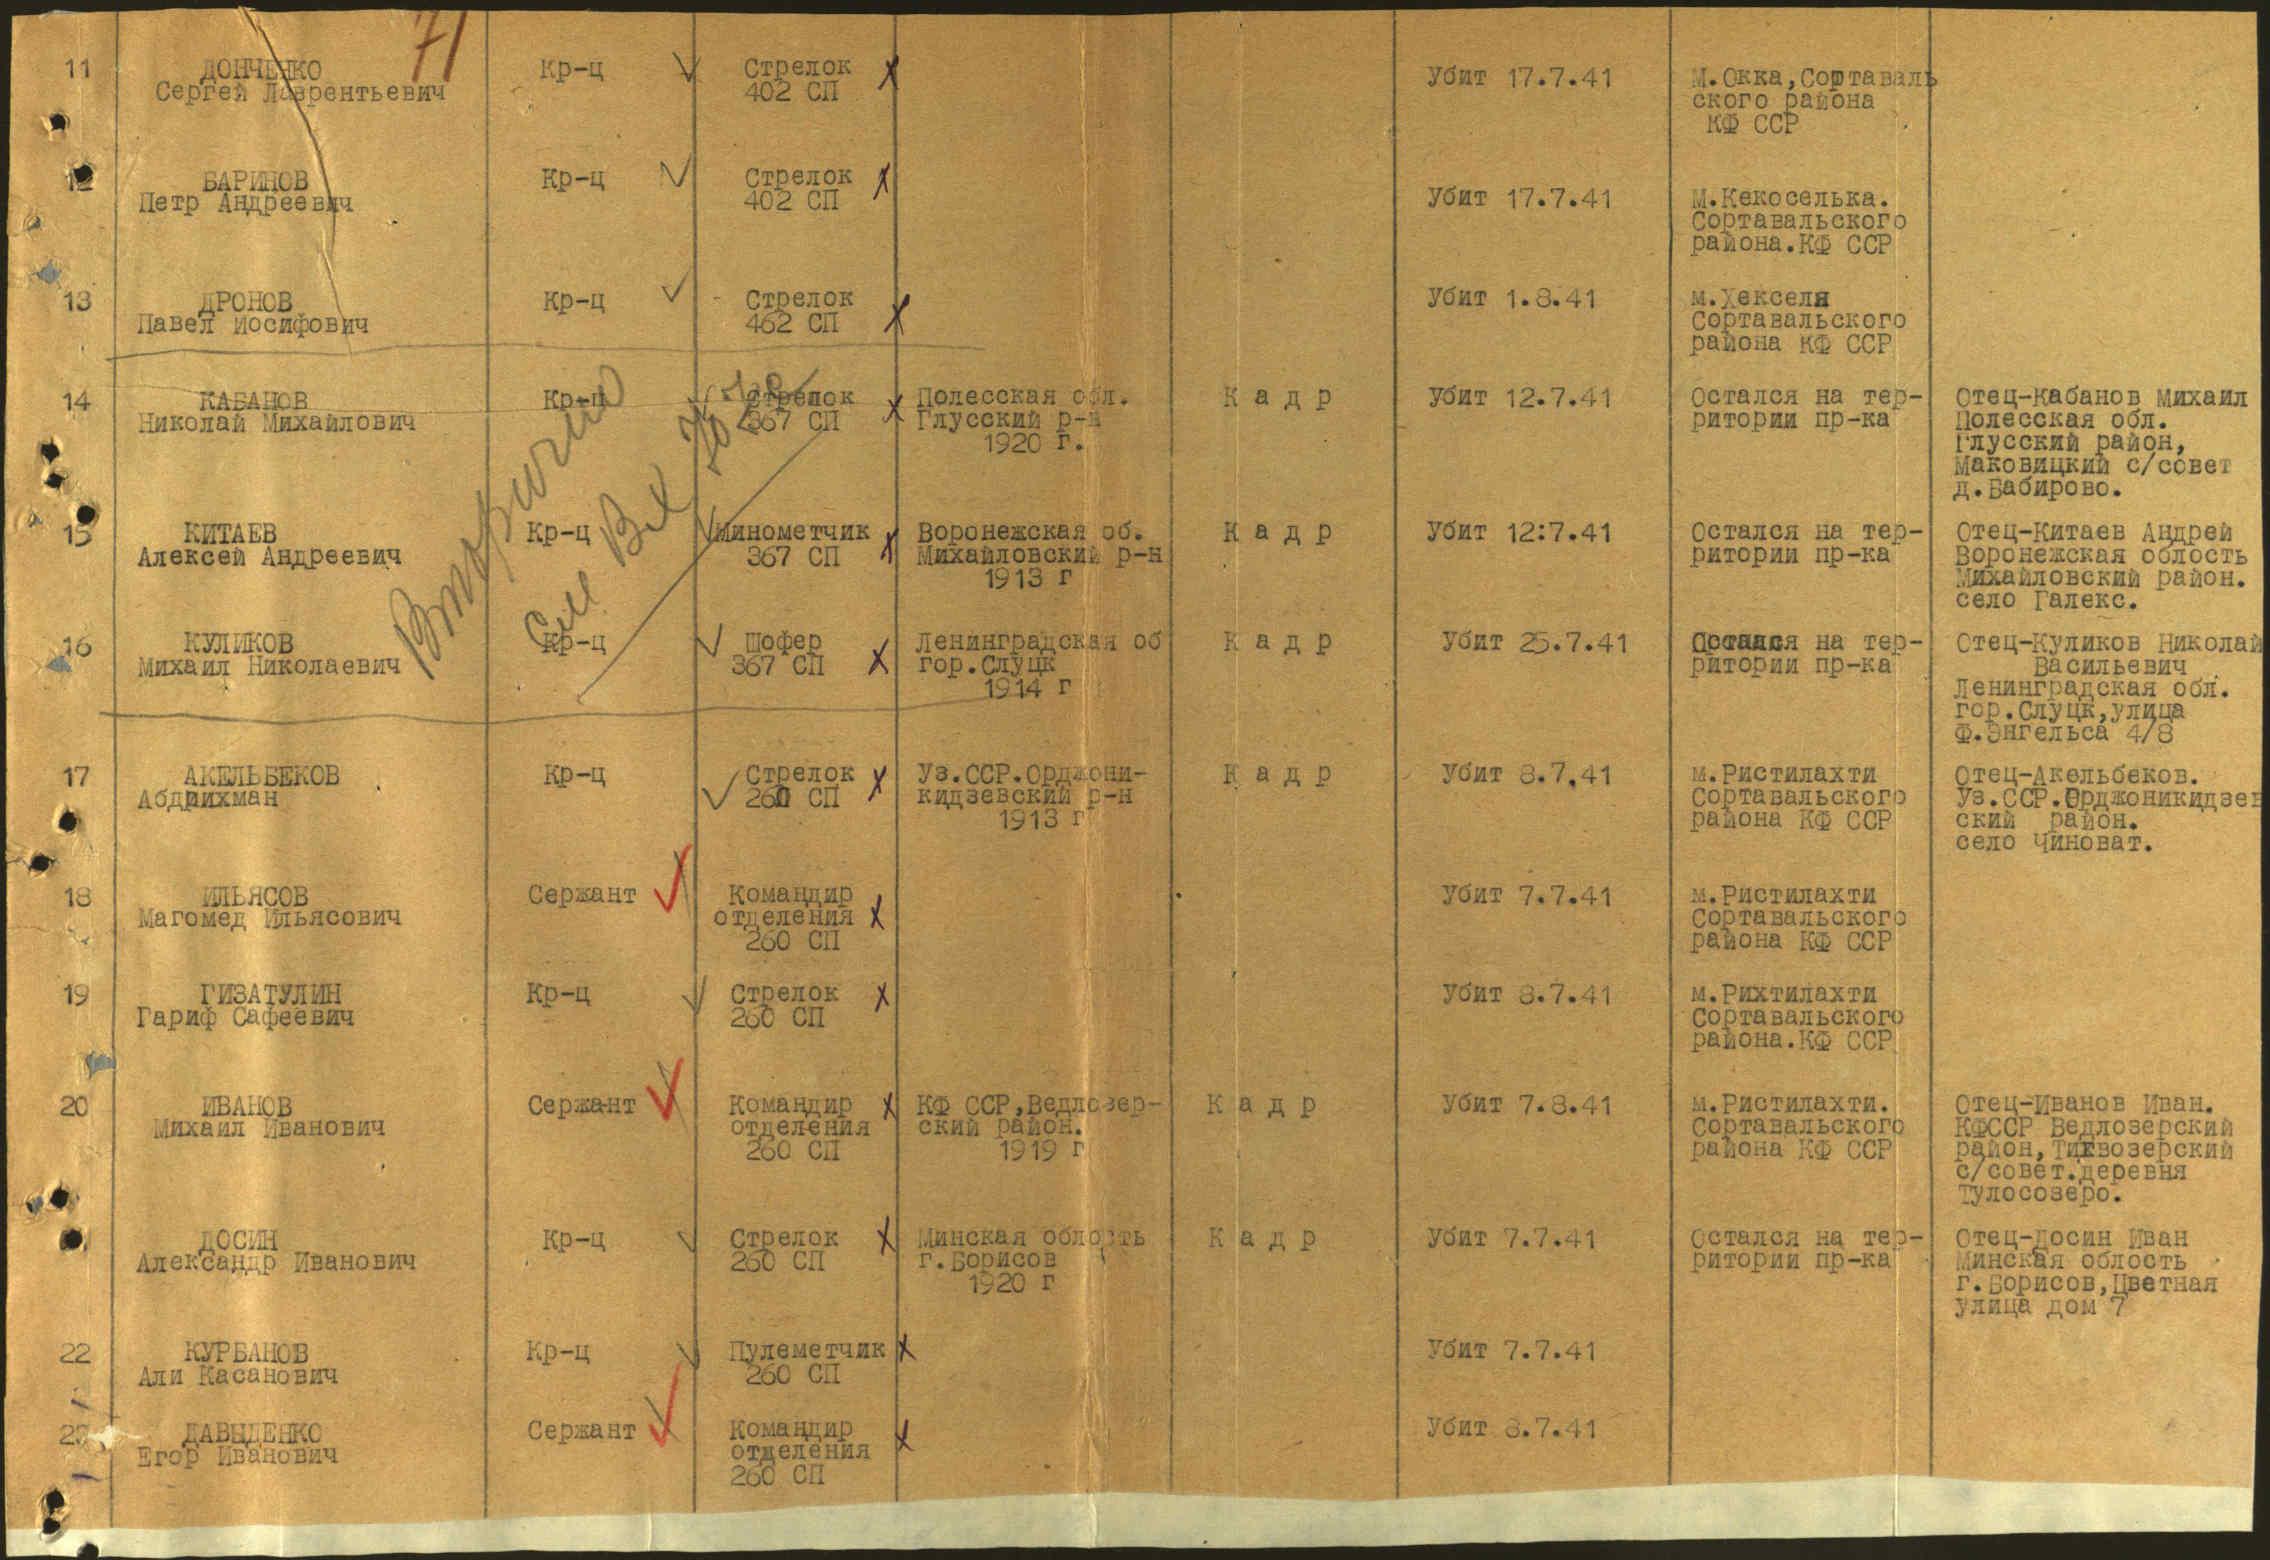 71
11
ДОНЧЕНКО
Сергей Лаврентьевич
Кр-ц
Стрелок
402 СП
Убит 17.7.41
М.Окка,Сортаваль
ского района
КФ ССР
12
БАРИНОВ
Петр Андреевич
Кр-ц
Стрелок
402 СП
Убит 17.7.41
М.Кекоселька.
Сортавальского
района.КФ ССР
13
ДРОНОВ
Павел Иосифович
Кр-ц
Стрелок
462 СП
Убит 1.8.41
м.Хекселя
Сортавальского
района КФ ССР
14
КАБАНОВ
Николай Михайлович
Кр-ц
Стрелок
367 СП
Полесская обл.
Глусский р-н
1920 г.
К а д р
Убит 12.7.41
Остался на тер-
ритории пр-ка
Отец-Кабанов Михаил
Полесская обл.
Глусский район,
Маковицкий с/совет
д.Бабирово.
Вторично
См Вх
15
КИТАЕВ
Алексей Андреевич
Кр-ц
Минометчик
367 СП
Воронежская об.
Михайловский р-н
1913 г
К а д р
Убит 12:7.41
Остался на тер-
ритории пр-ка
Отец-Китаев Андрей
Воронежская облость
Михайловский район.
село Галекс.
16
КУЛИКОВ
Михаил Николаевич
Кр-ц
Шофер
367 СП
Ленинградская об
гор.Слуцк
1914 г
К а д р
Убит 25.7.41
Остался на тер-
ритории пр-ка
Отец-Куликов Николай
Васильевич
Ленинградская обл.
гор.Слуцк,улица
Ф.Энгельса 4/8
17
АКЕЛЬБЕКОВ
Кр-ц
Стрелок
260 СП
Уз.ССР.Орджони-
кидзевский р-н
1913 г
К а д р
Убит 8.7.41
м.Ристилахти
Сортавальского
района КФ ССР
Отец-Акельбеков.
Уз.ССР.Орджоникидзев
ский район.
село Чиноват.
18
ИЛЬЯСОВ
Магомед Ильясович
Сержант
Командир
отделения
260 СП
Убит 7.7.41
м.Ристилахти
Сортавальского
района КФ ССР
19
ГИЗАТУЛИН
Гариф Сафеевич
Кр-ц
Стрелок
260 СП
Убит 8.7.41
м.Рихтилахти
Сортавальского
района.КФ ССР
20
ИВАНОВ
Михаил Иванович
Сержант
Командир
отделения
260 СП
КФ ССР,Ведлозер-
ский район.
1919 г
К а д р
Убит 7.8.41
м.Ристилахти.
Сортавальского
района КФ ССР
Отец-Иванов Иван.
КФССР Ведлозерский
район,Тиквозерский
с/совет.деревня
Тулосозеро.
ДОСИН
Александр Иванович
Кр-ц
Стрелок
260 СП
Минская облость
г.Борисов
1920 г
К а д р
Убит 7.7.41
Остался на тер-
ритории пр-ка
Отец-Досин Иван
Минская облость
г.Борисов,Цветная
улица дом 7
22
КУРБАНОВ
Али Касанович
Кр-ц
Пулеметчик
260 СП
Убит 7.7.41
ДАВЫДЕНКО
Егор Иванович
Сержант
Командир
отделения
260 СП
Убит 8.7.41